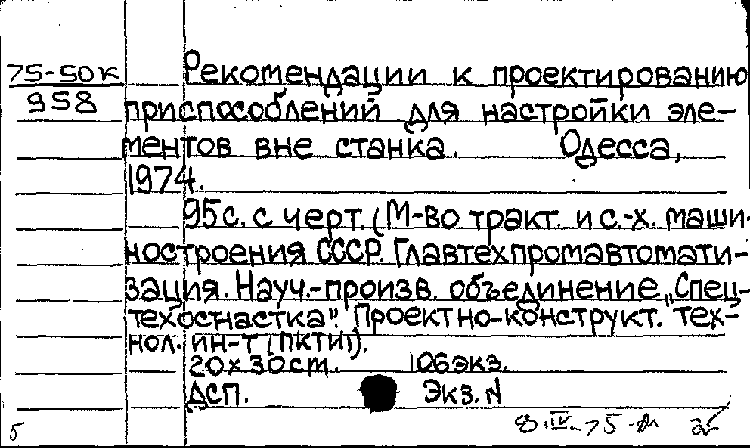 75-50к
958
Рекомендации к проектированию
приспособлений для настройки эле-
ментов вне станка. Одесса,
1974.
95с. с черт. (М-во тракт. и с.-х. маши-
ностроения СССР. Главтехпромавтомати-
зация. Науч.-произв. объединение „Спец-
техоснастка". Проектно-конструкт. тех-
нол. ин-т (ПКТИ)).
20х30cm. 106экз.
ДСП. Экз. N
8.IV-75
5